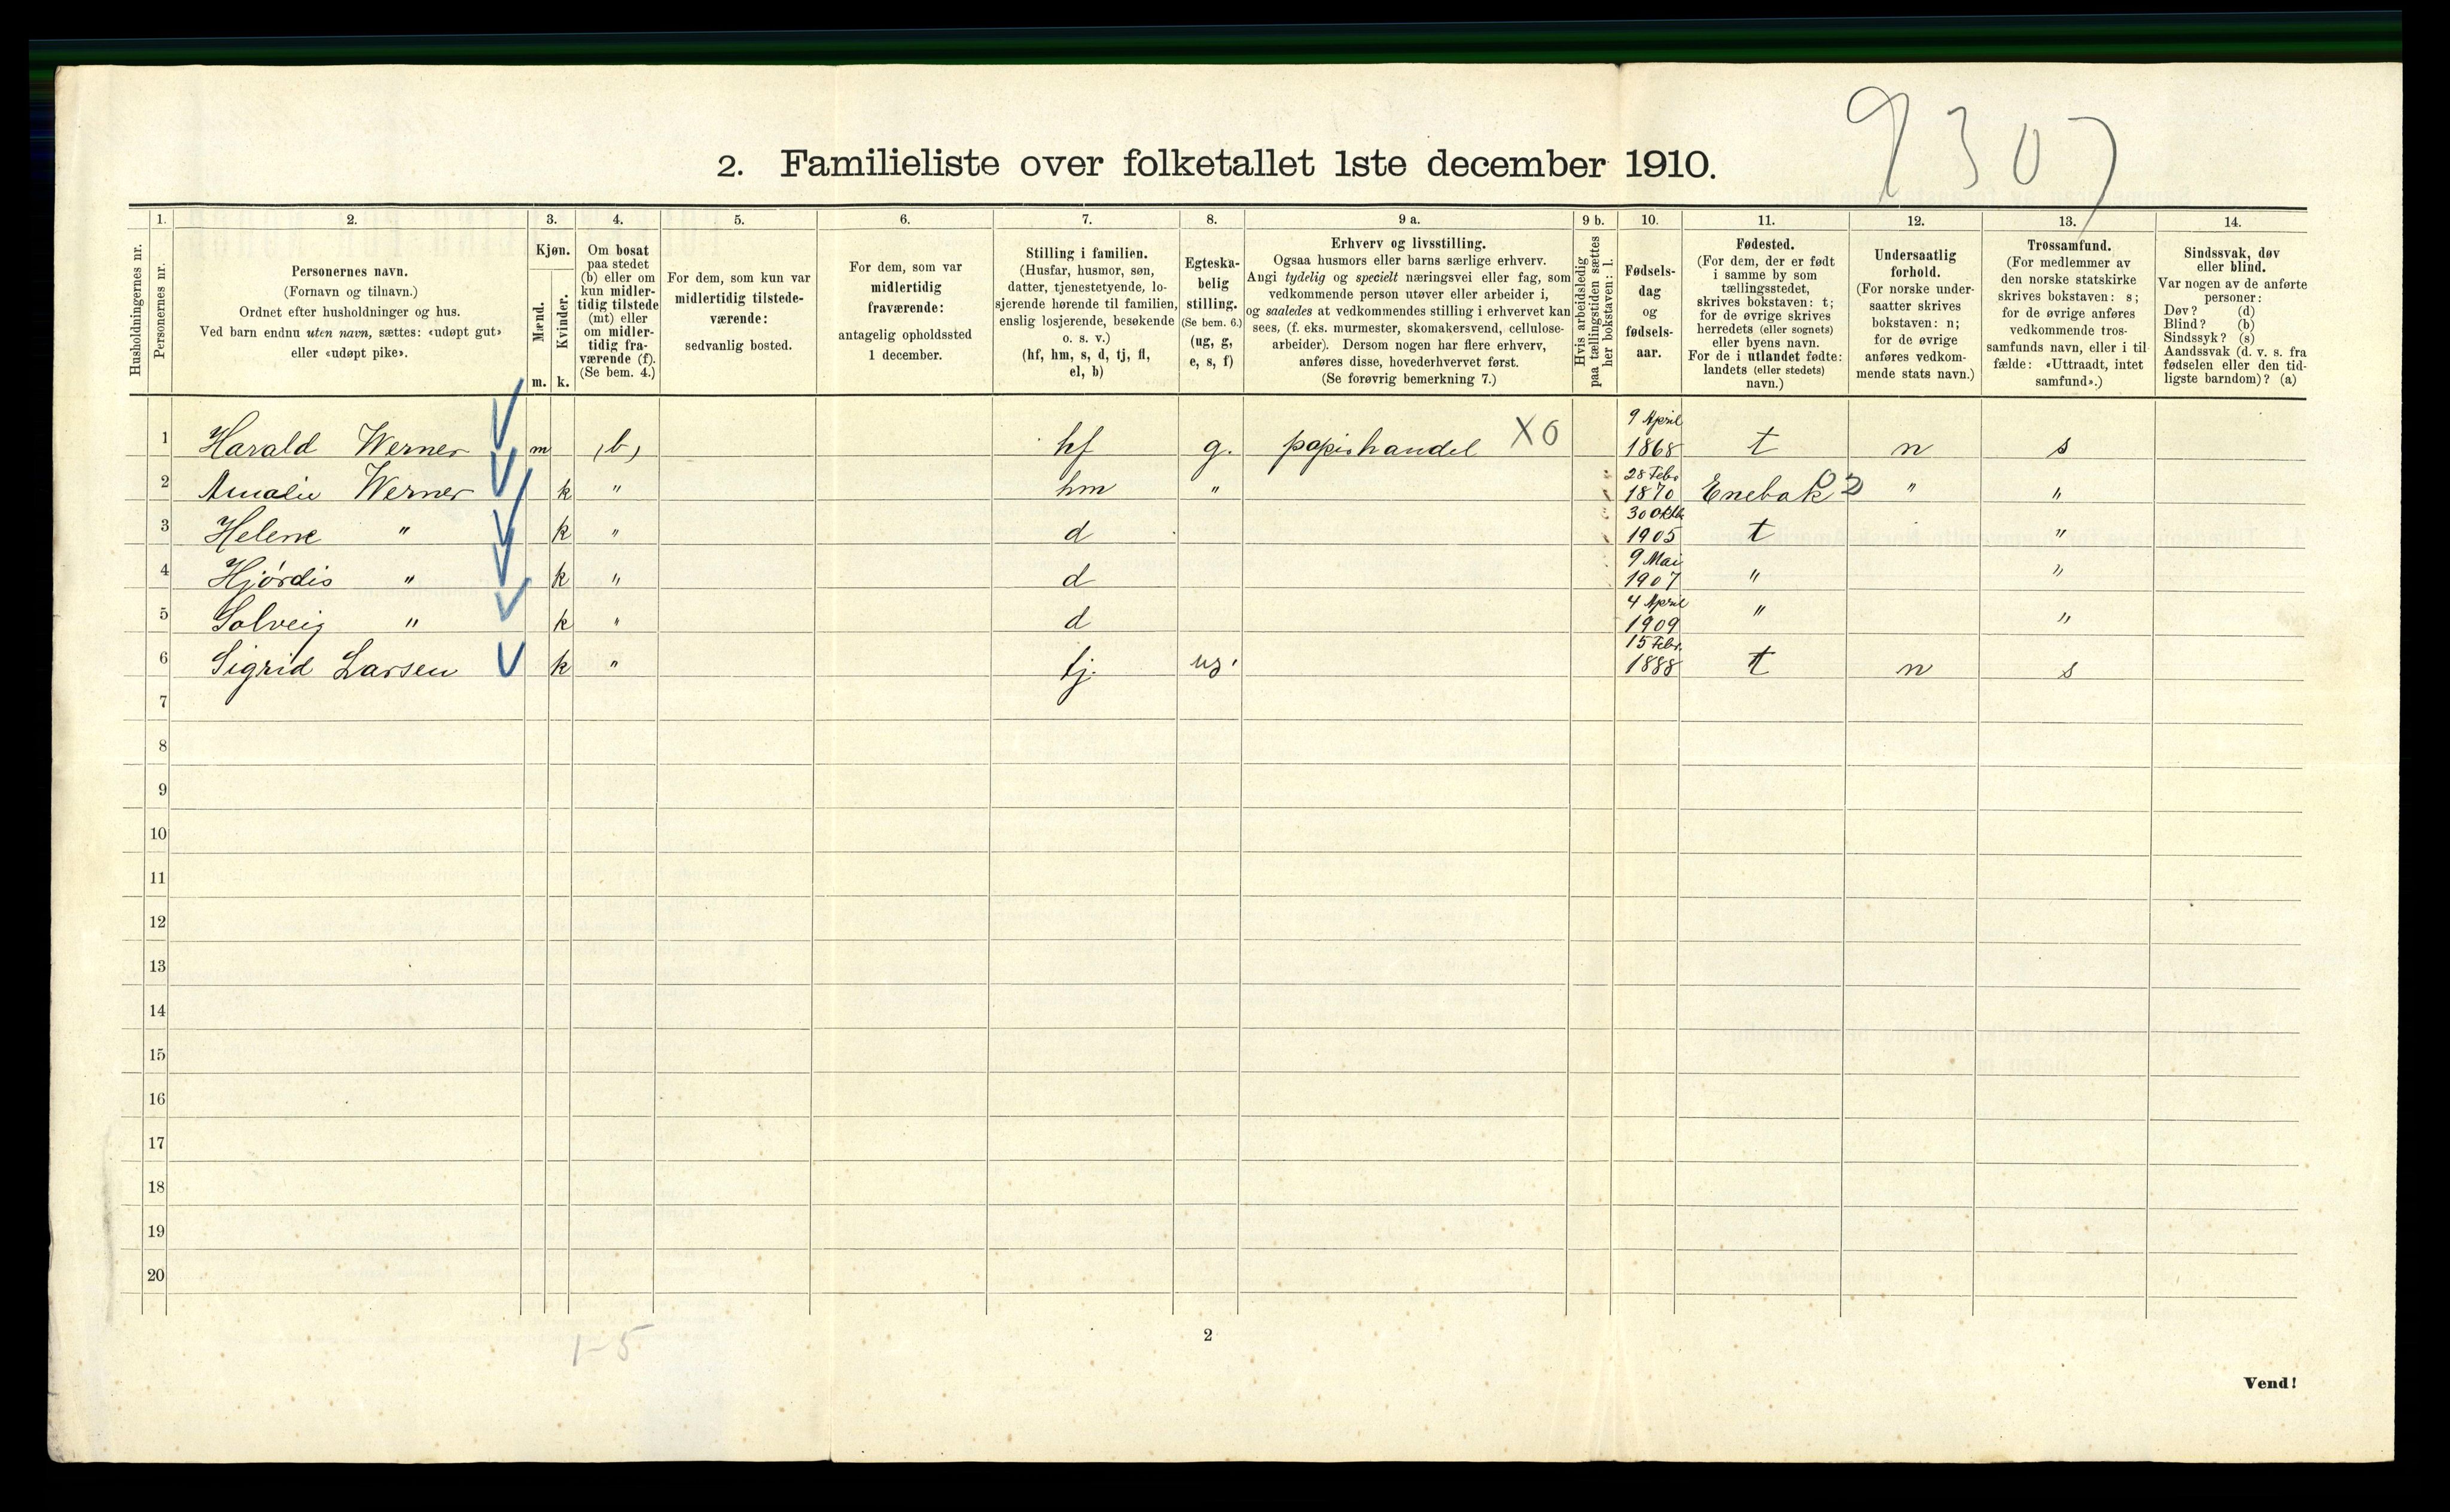 9307
2. Familieliste over folketallet 1ste december 1910.
Husholdningernes nr.
1.
Personernes nr.
2.
Personernes navn.
(Fornavn og tilnavn.)
Ordnet efter husholdninger og hus.
Ved barn endnu uten navn, sættes: «udøpt gut»
eller «udøpt pike».
3.
Kjøn.
Mænd.
Kvinder.
m. k.
4.
Om bosat
paa stedet
(b) eller om
kun midler-
tidig tilstede
(mt) eller
om midler-
tidig fra-
værende (f).
(Se bem. 4.)
5.
For dem, som kun var
midlertidig tilstede-
værende:
sedvanlig bosted.
6.
For dem, som var
midlertidig
fraværende:
antagelig opholdssted
1 december.
7.
Stilling i familien.
(Husfar, husmor, søn,
datter, tjenestetyende, lo-
sjerende hørende til familien,
enslig losjerende, besøkende
o. s. v.)
(hf, hm, s, d, tj, fl,
el, b)
8.
Egteska-
belig
stilling.
(Se bem. 6.)
(ug, g,
e, s, f)
9 a.
Erhverv og livsstilling.
Ogsaa husmors eller barns særlige erhverv.
Angi tydelig og specielt næringsvei eller fag, som
vedkommende person utøver eller arbeider i,
og saaledes at vedkommendes stilling i erhvervet kan
sees, (f. eks. murmester, skomakersvend, cellulose-
arbeider). Dersom nogen har flere erhverv,
anføres disse, hovederhvervet først.
(Se forøvrig bemerkning 7.)
9 b.
Hvis arbeidsledig
paa tællingstiden sættes
her bokstaven: l.
10.
Fødsels-
dag
og
fødsels-
aar.
11.
Fødested.
(For dem, der er født
i samme by som
tællingsstedet,
skrives bokstaven: t;
for de øvrige skrives
herredets (eller sognets)
eller byens navn.
For de i utlandet fødte:
landets (eller stedets)
navn.)
12.
Undersaatlig
forhold.
(For norske under-
saatter skrives
bokstaven: n;
for de øvrige
anføres vedkom-
mende stats navn.)
13.
Trossamfund.
(For medlemmer av
den norske statskirke
skrives bokstaven: s;
for de øvrige anføres
vedkommende tros-
samfunds navn, eller i til-
fælde: «Uttraadt, intet
samfund».)
14.
Sindssvak, døv
eller blind.
Var nogen av de anførte
personer:
Døv? (d)
Blind? (b)
Sindssyk? (s)
Aandssvak (d. v. s. fra
fødselen eller den tid-
ligste barndom)? (a)
1 Harald Werner m (b) hf g. papirhandel X0 9 April 1868 t n s
2 Amalie Werner k " hm " 28 Febr 1870 Enebak 2 " "
3 Helene " k " d 30 Oktb 1905 t "
4 Hjördis " k " d 9 Mai 1907 " "
5 Solveig " k " d 4 April 1909 " "
6 Sigrid Larsen k " tj. ug. 15 Febr. 1888 t n s
7
8
9
10
11
12
13
14
15
16
17
18
19
20
1-5
2
Vend!